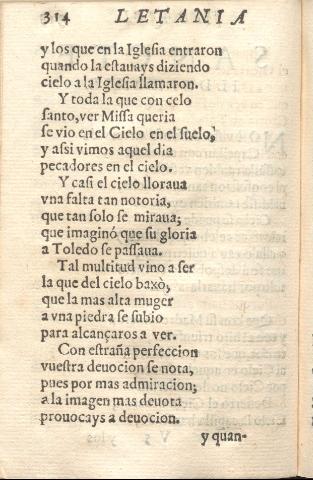 314 LETANIA
y los que en la Iglesia entraron
quando la estauays diziendo
cielo a la Iglesia llamaron.
Y toda la que con celo
santo, ver Missa queria
se vio en el Cielo en el suelo,
y assi vimos aquel dia
pecadores en el cielo.
Y casi el cielo lloraua
vna falta tan notoria,
que tan solo se miraua;
que imaginò que su gloria
a Toledo se passaua.
Tal multitud vino a ser
la que del cielo baxò,
que la mas alta muger
a vna piedra se subio
para alcançaros a ver.
Con estraña perfeccion
vuestra deuocion se nota,
pues por mas admiracion;
a la imagen mas deuota
prouocays a deuocion.
y quan-